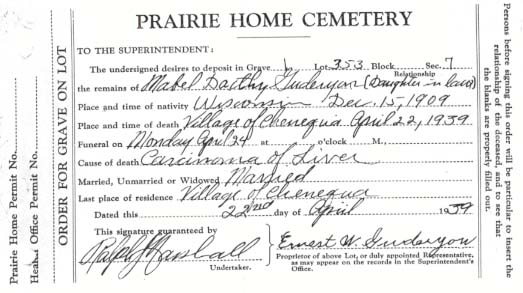 PRAIRIE HOME CEMETERY
TO THE SUPERINTENDENT:
The undersigned desires to deposit in Grave 6 Lot 353 Block Sec. 7
Relationship
the remains of Mabel Dorthy Guderyon (Daughter in law)
Place and time of nativity Wisconsin Dec. 15, 1909
Place and time of death Village of Chenequa April 22, 1939
Funeral on Monday April 24 at o'clock M.,
Cause of death Carcinoma of Liver
Married, Unmarried or Widowed Married
Last place of residence Village of Chenequa
Dated this 22nd day of April 1939
This signature guaranteed by
Ralph J Marshall
Undertaker.
Ernest W. Guderyon
Proprietor of above Lot, or duly appointed Representative,
as may appear on the records in the Superintendent's
Office.
Prairie Home Permit No.
Head Office Permit No.
ORDER FOR GRAVE ON LOT
Persons before signing this order will be particular to insert the
relationship of the deceased, and to see that
the blanks are properly filled out.